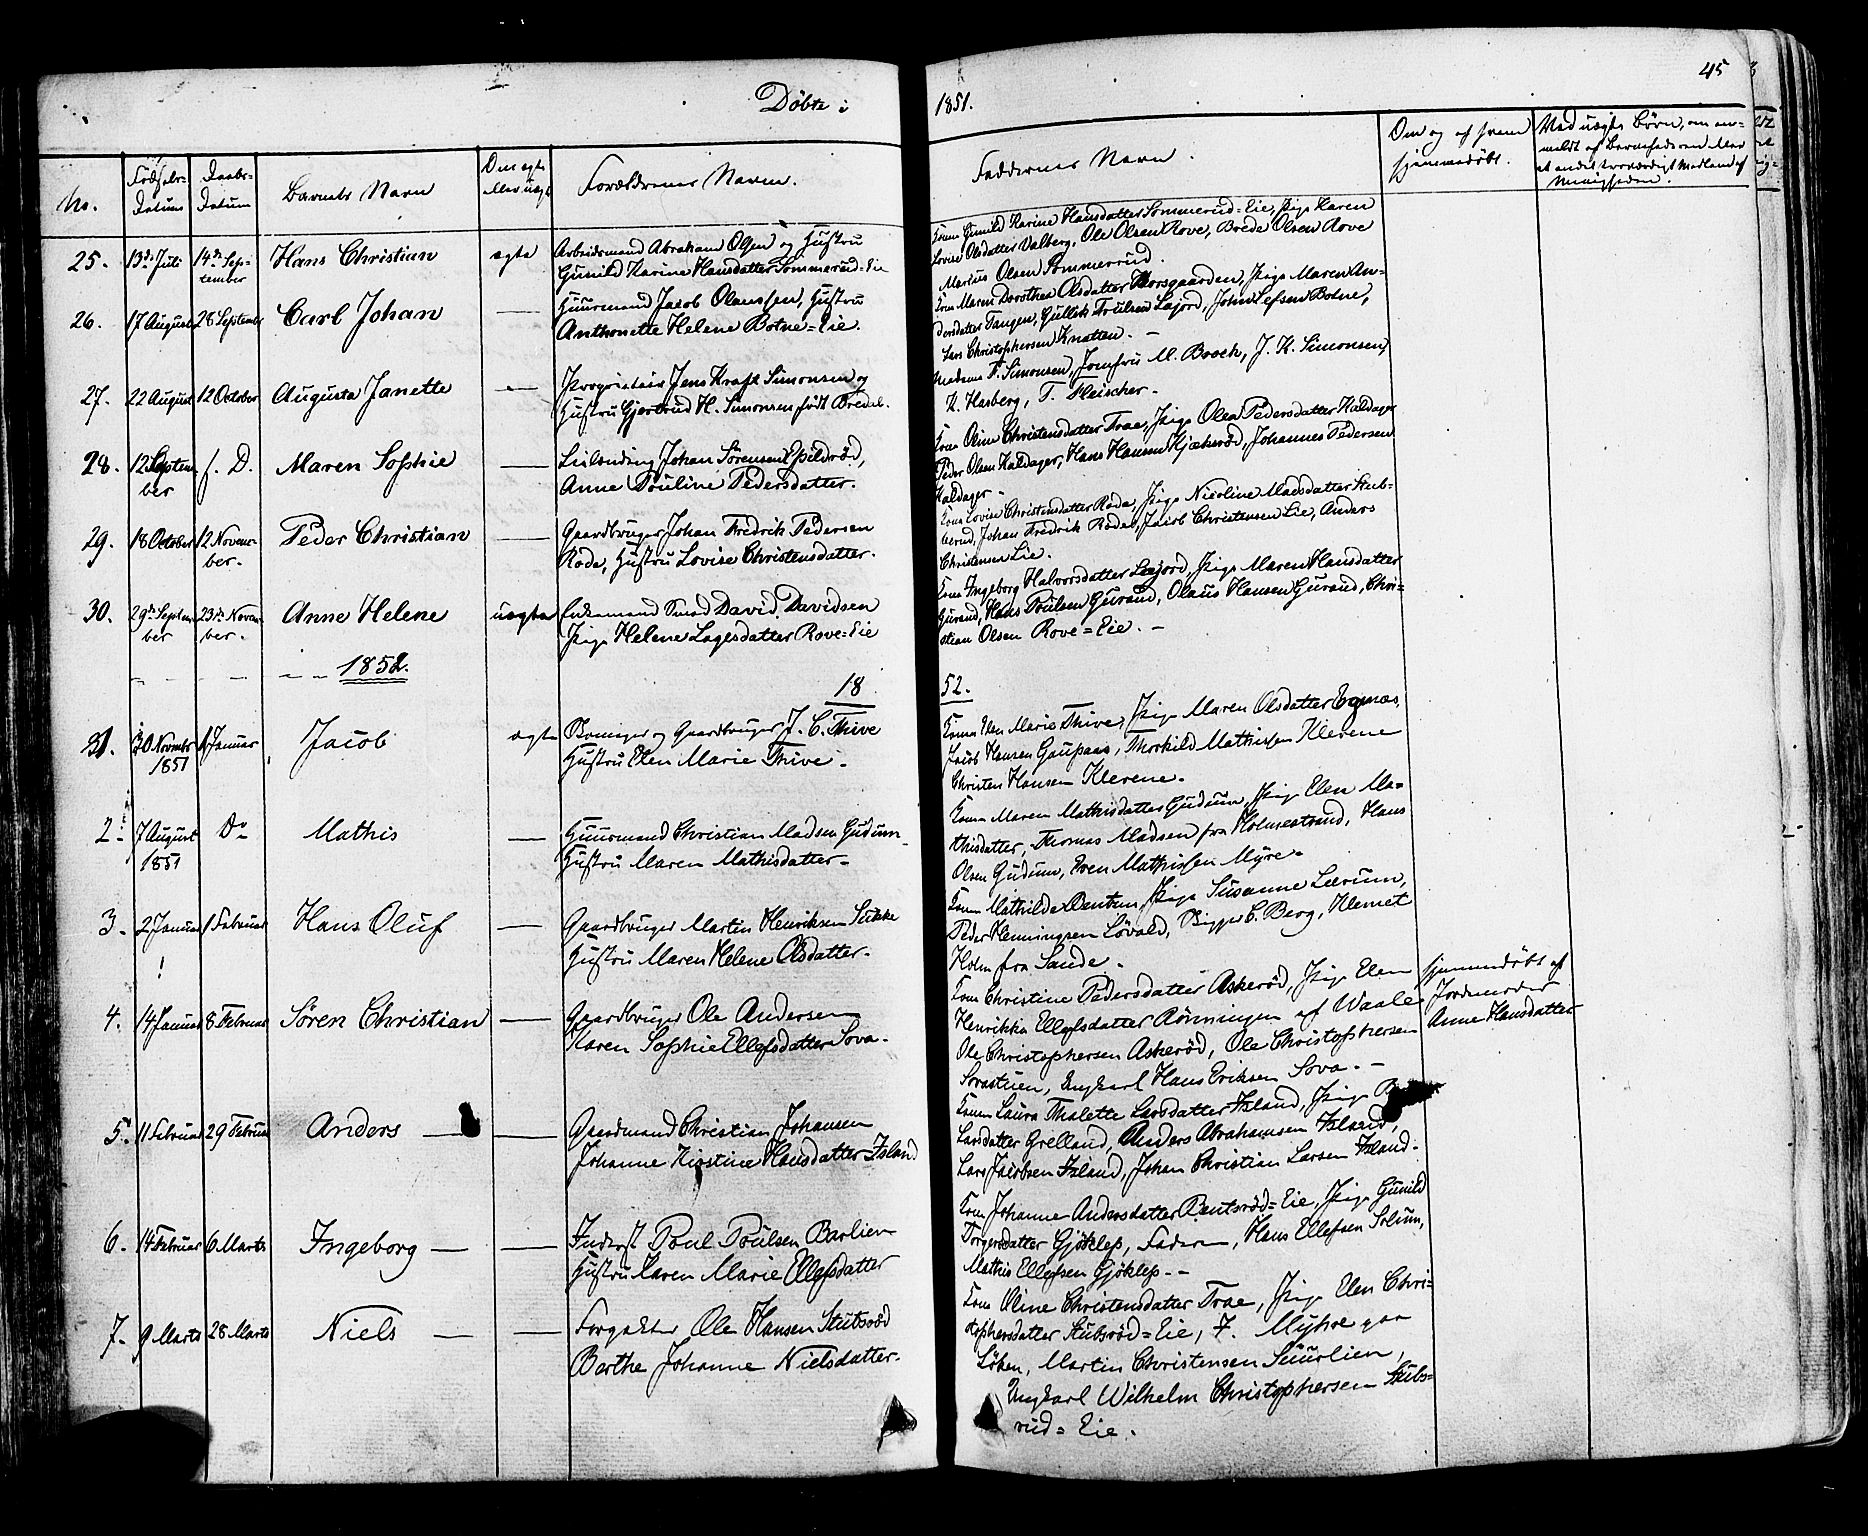 Døbte i
1851.
45
No.
Fødsels-
Datum
Daabs-
Datum
Barnets Navn
Om ægte
eller uægte
Forældrenes Navn.
Faddernes Navn.
Om og af hvem
hjemmedøbt.
Ved uægte Børn, om an-
meldt af Barnefaderen eller
et andet troværdigt Medlem af
Menigheden.
25.
13de Juli
14de Sep-
tember
Hans Christian
ægte
Arbeidsmand Abraham Olsen og Hustru
Gunild Karine Hansdatter Sommerud=Eie
Kone Gunild Karine Hansdatter Sommerud=Eie, Pige Karen
Lovise Olsdatter Valberg, Ole Olsen Rove, Brede Olsen Rove
Marius Olsen Sommerud.
26.
17 August
28 September
Carl Johan
Huusmand Jacob Olaussen, Hustru
Anthonette Helene Botne=Eie.
Kone Maren Dorothea Olsdatter Korsgaarden, Pige Maren An-
dersdatter Tangen, Gullik Poulsen Lajord, John Lefsen Botne,
Lars Christophersen Knatten. -
27.
22 August
12 October
Augusta Janette
Proprietair Jens Kraft Simonsen og
Hustru Gjertrud H. Simonsen født Bredal.
Madame F. Simonsen, Jomfru M. Broch, J. K. Simonsen,
K. Hasberg, T. Fleischer.
28.
12 Septem-
ber
s. D.
Maren Sophie
Leilænding Johan Sørensen Epildrød,
Anne Pouline Pedersdatter.
Kone Oline Christensdatter Trae, Pige Olea Pedersdatter Haldager
Peder Olsen Haldager, Hans Hansen Kjækerød, Johannes Pedersen
Haldager.
29.
18 October
12 Novem-
ber.
Peder Christian
Gaardbruger Johan Fredrik Pedersen
Røde, Hustru Lovise Christensdatter.
Kone Lovise Christensdatter Røde, Pige Nicoline Madsdatter Stub-
berud, Johan Fredrik Røde, Jacob Christensen Lie, Anders
Christensen Lie.
30.
29de Septem-
ber
23de Novem-
ber.
Anne Helene
uægte
Enkemand Smed David Davidsen
Pige Helene Lagesdatter Rove=Eie
Kone Ingeborg Halvorsdatter Lajord, Pige Maren Hansdatter
Gurand, Hans Poulsen Gurand, Olaus Hansen Gurand, Chri-
stian Olsen Rove=Eie. -
1852.
18
52.
1.
30 Novembr
1851
1 Januar
Jacob
ægte
Gaardbruger J. C. Thive
Hustru Elen Marie Thive.
Kone Elen Marie Thive, Pige Maren Olsdatter Egenæs,
Jacob Hansen Gaupaas, Thorkild Mathissen Klevene
Christen Hansen Klevene.
2
7 August
1851
Do
Mathis
Huusmand Christian Madsen Gudum
Hustru Maren Mathisdatter.
Kone Maren Mathisdatter Gudum, Pige Elen Ma-
thisdatter, Thomas Madsen fra Holmestrand, Hans
Olsen Gudum, Even Mathissen Myre.
3.
2 Januar
1 Februar
Hans Oluf
Gaardbruger Martin Henriksen Sukke
Hustru Maren Helene Olsdatter.
Kone Mathilde Bentsen Pige Susanne Lærum,
Peder Henningsen Løvald, Bigger C. Berg, Klemet
Holm fra Sande.
4.
14 Januar
8 Februar
Søren Christian
Gaardbruger Ole Andersen
Karen Sophie Ellefsdatter Sova.
Kone Christine Pedersdatter Askerød, Pige Elen
Henrikka Ellefsdatter Rønningen af Waale
Ole Christophersen Askerød, Ole Christophersen
Sovastuen, Ungkarl Hans Eriksen Sova. -
hjemmedøbt af
Jordemoder
Anne Hansdatter
5.
11 Februar
29 Februar
Anders
Gaardmand Christian Johansen
Johanne Kirstine Hansdatter Island
Kone Laura Thalette Larsdatter Island, Pige
Larsdatter Grelland, Anders Abrahamsen Island,
Lars Jacobsen Island, Johan Christian Larsen Island.
6.
14 Februar
6 Marts
Ingeborg
Inderst Poul Poulsen Barlien
Hustru Karen Marie Ellefsdatter
Kone Johanne Andersdatter Rentsrød=Eie, Pige Gunild
Torgersdatter Gjøklep, Faderen, Hans Ellefsen Solum,
Mathis Ellefsen Gjøklep. -
7.
9 Marts
28 Marts
Niels
Forpakter Ole Hansen Stubsrød
Berthe Johanne Nielsdatter.
Kone Oline Christensdatter Trae, Pige Elen Chri-
stophersdatter Stubsrød=Eie, F. Myhre paa
Løken, Martin Christensen Suurlien,
Ungkarl Wilhelm Christophersen Stubs-
rud=Eie.